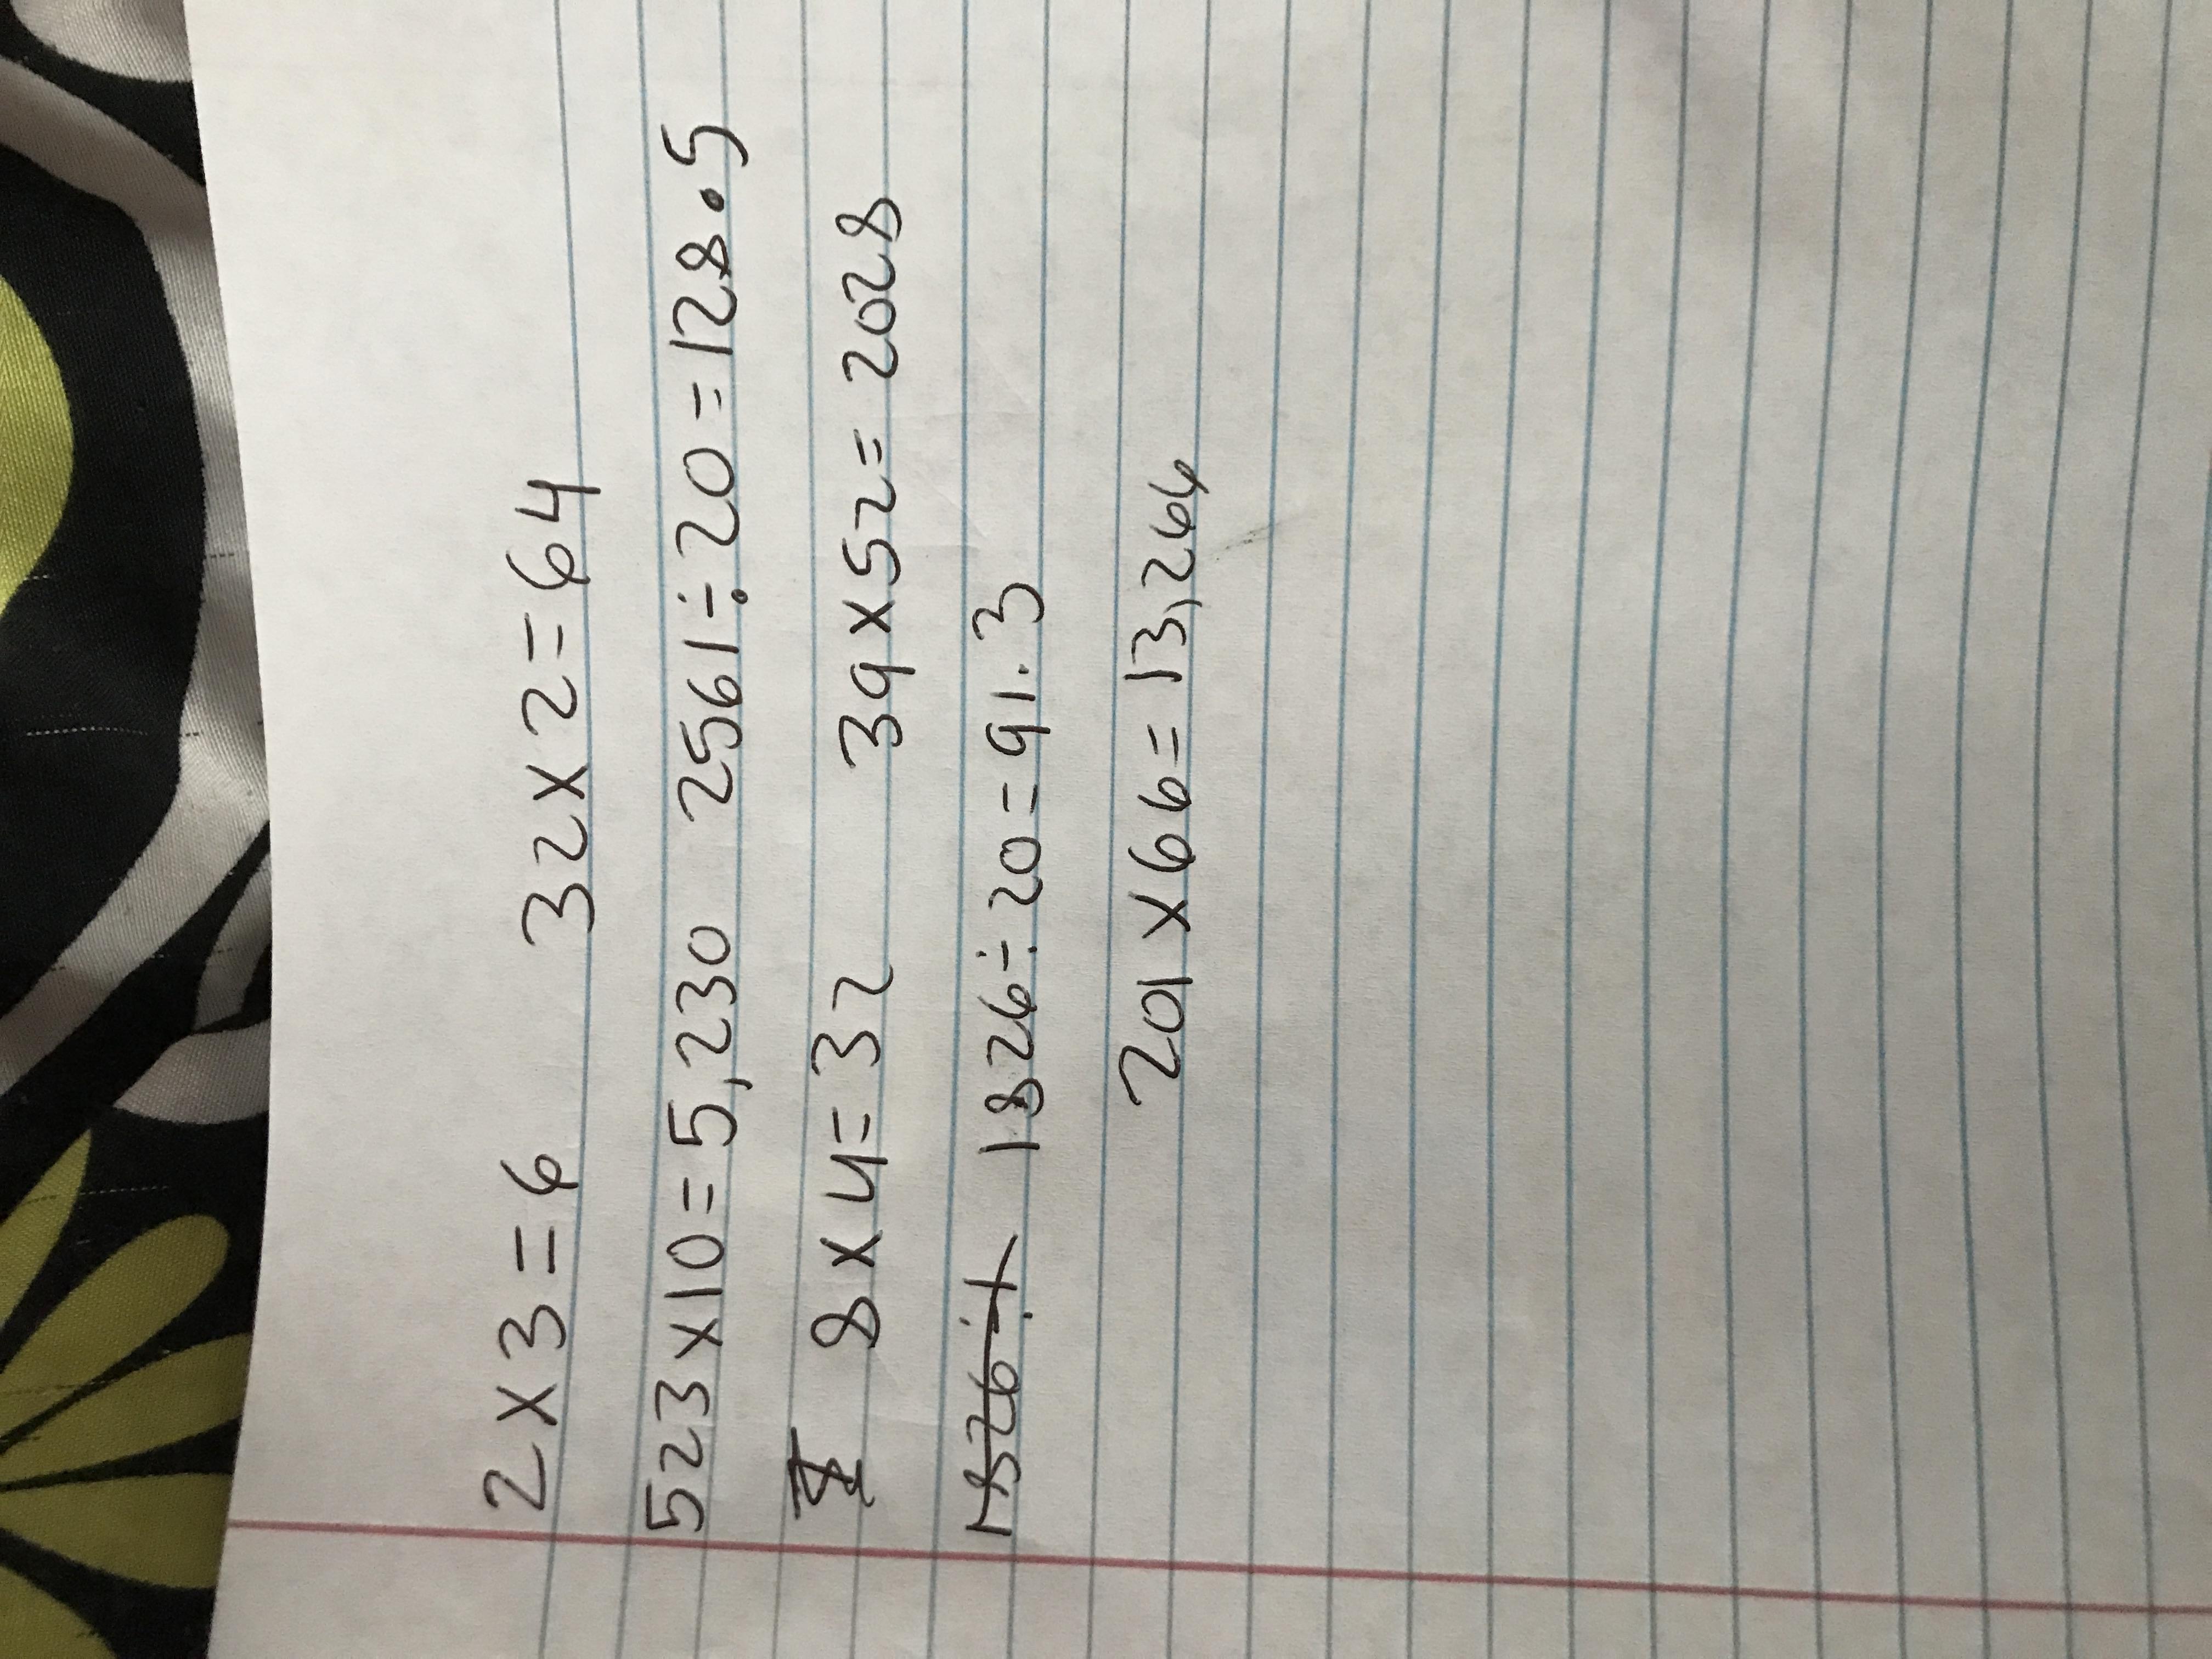 2 x 3 = 6 32 x 2 = 64
523 x 10 = 5,230 2561 ÷ 20 = 128.5
8 x 4 = 32 39 x 52 = 2028
1826 ÷ 1826 ÷ 20 = 91.3
201 x 66 = 13,264